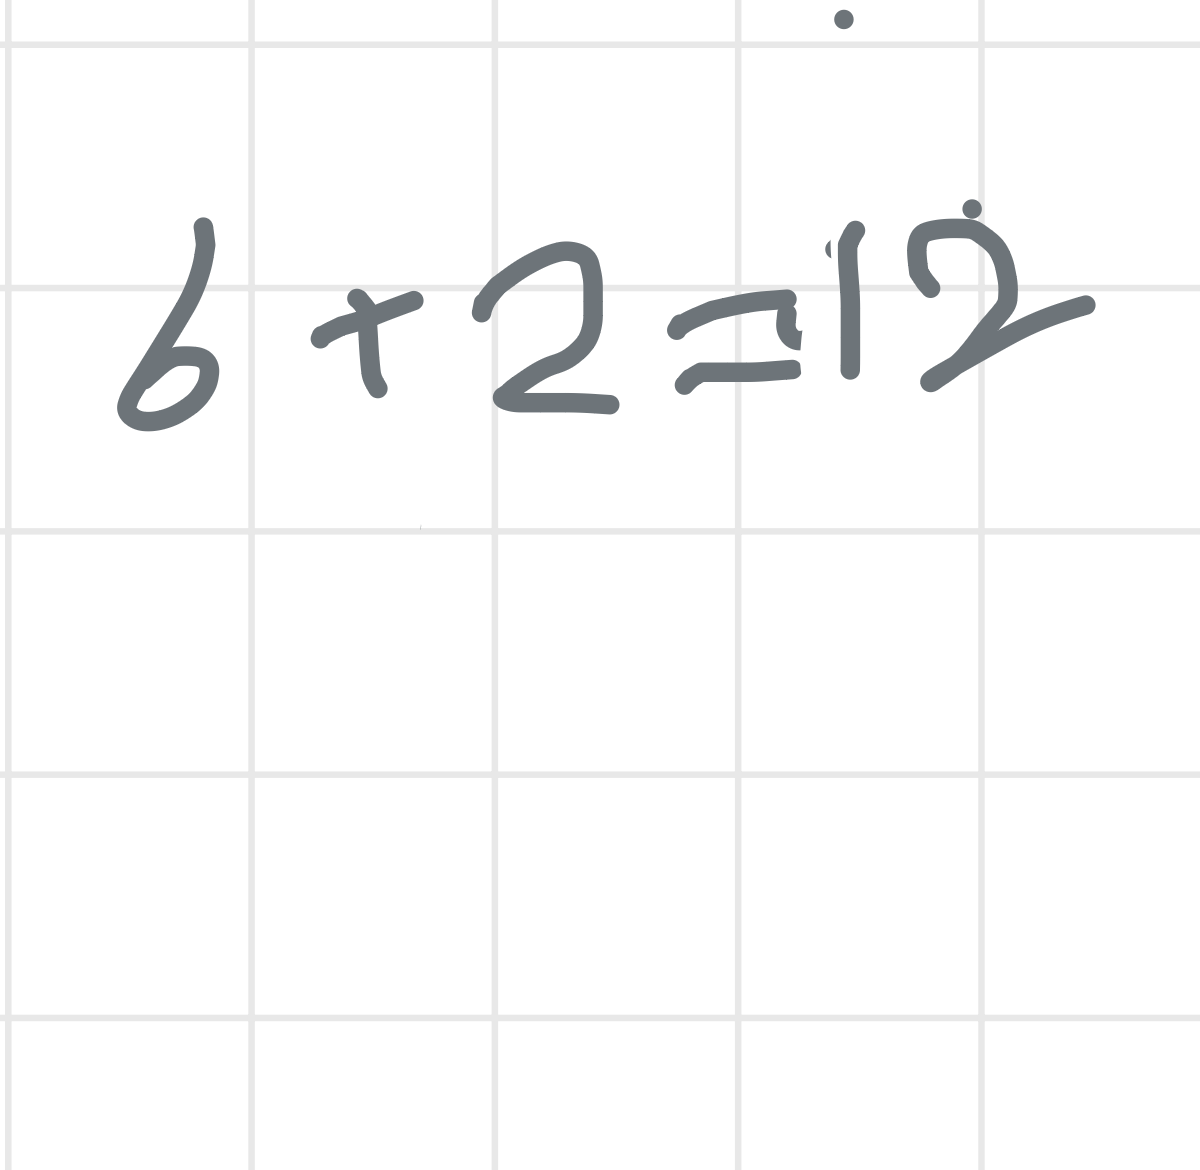 6 + 2 = 12